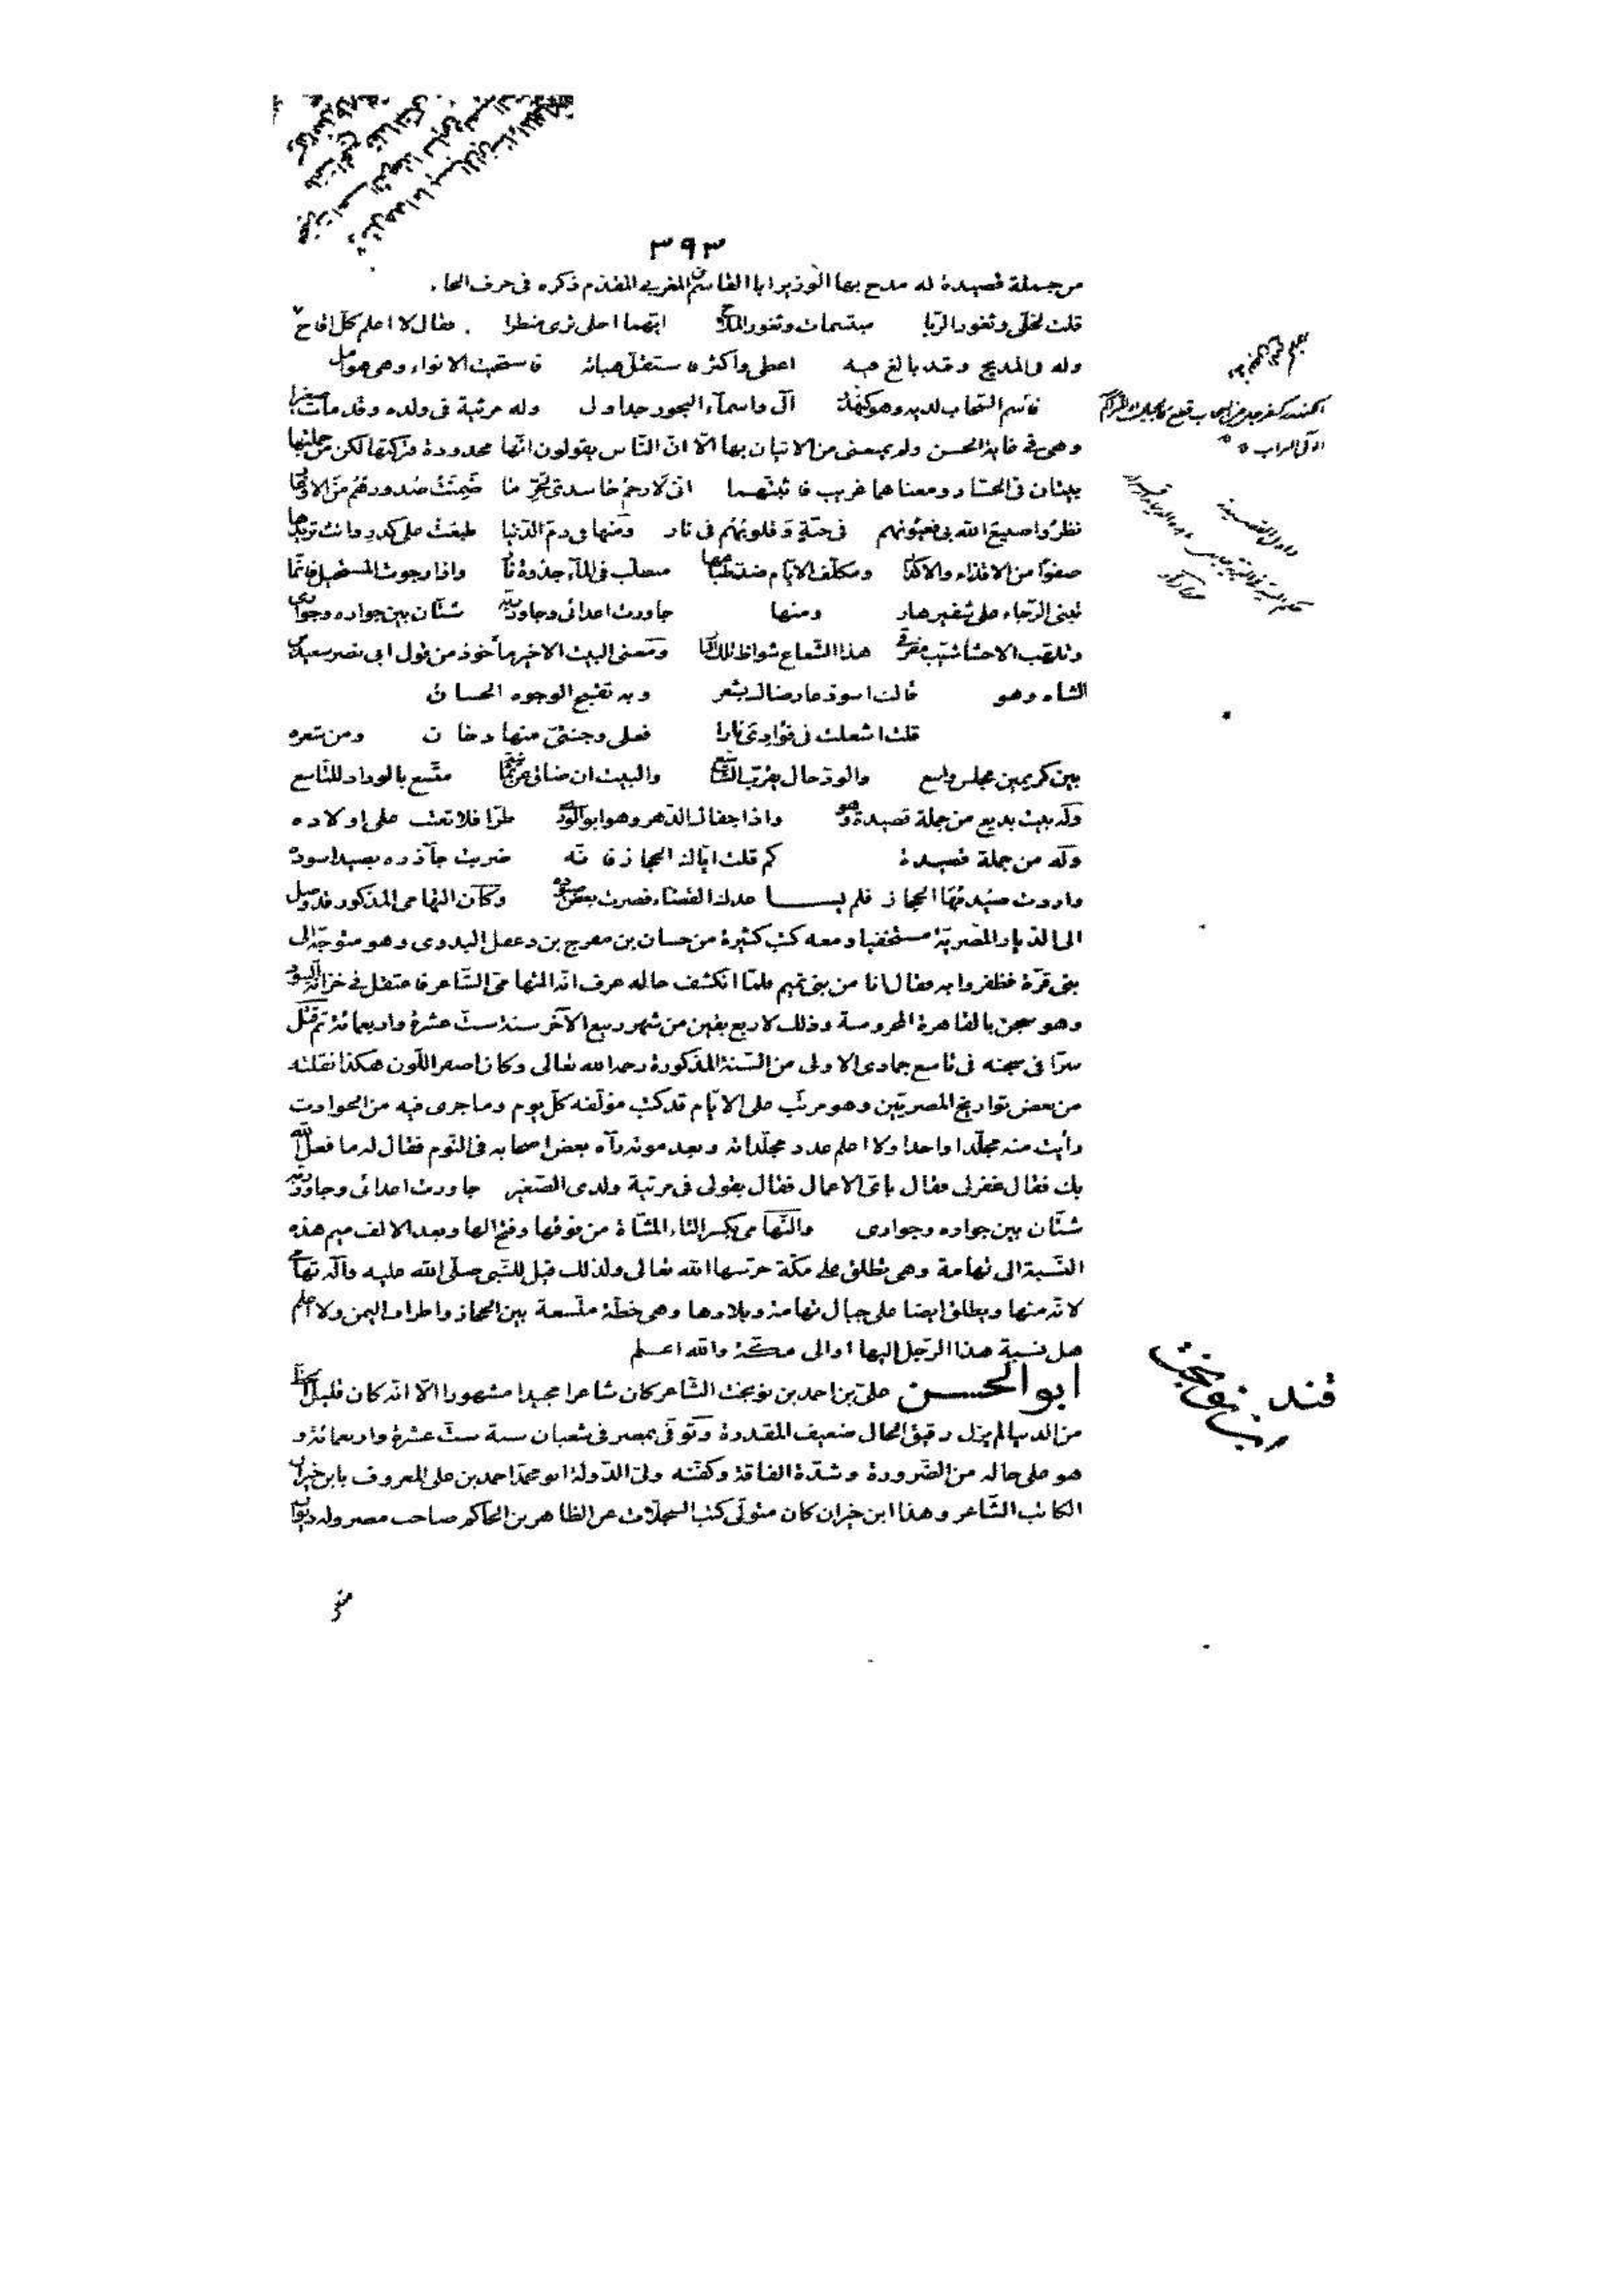 ٣٩٣
من جملة قصيدة له مدح بها الوزير ابا القاسم المغربي المقدم ذكره فى حرف الحا
قلت لخلّى وثغور الرّبا مبتسمات وثغور الملاح ايّهما احلى ترى منظرا فقال لا اعلم كلّ اقاح
وله فى المديح وقد بالغ فيه اعطى واكثر فاستقلّ هباته فاستحيت الانواء وهى هوامل
فاسم السّحاب لديه وهو كنهور آل واسماء البحور جداول وله مرثية فى ولده وقد مات صغيرا
وهى فى غاية الحسن ولم يمنعنى من الاتيان بها الّا انّ النّاس يقولون انّها محدودة فتركتها لكن من جملتها
بيتان فى الحسّاد ومعناهما غريب فاثبتّهما انّى لارحم حاسدىّ لحرّ ما ضمنت صدورهم من الاوغار
نظروا صنيع الله بى فعيونهم فى جنّة وقلوبهم فى نار ومنها فى ذمّ الدّنيا طبعت على كدر وانت تريدها
صفوًا من الاقذاء والاكدار ومكلّف الايّام ضدّ طباعها متطلّب فى الماء جذوة نار واذا رجوت المستحيل فانّما
تبنى الرّجاء على شفير هار ومنها جاورت اعدائى وجاور ربّه شتّان بين جواره وجوارى
وتلهّب الاحشاء شيّب مفرقى هذا الشّعاع شواظ تلك النار ومعنى البيت الاخير مأخوذ من قول ابى نصر سعيد بن
الشاه وهو قالت اسودّ عارضاك بشعر وبه تقبح الوجوه الحسان
قلت اشعلت فى فؤادى نارا فعلى وجنتىّ منها دخان ومن شعره
بين كريمين مجلس واسع والودّ حال يقرّب الشاسع والبيت ان ضاق عن ثمانية متّسع بالوداد للتّاسع
وله بيت بديع من جملة قصيدة وهو واذا جفاك الدّهر وهو ابو الورى طرّا فلا تعتب على اولاده
وله من جملة قصيدة كم قلت ايّاك الحجاز فانّه ضربت جآذره بصيد اسوده
واردت صيد مها الحجاز فلم يساعدك القضاء فصرت بعض صيوده وكان التهامى المذكور قد وصل
الى الدّيار المصريّة مستخفيا ومعه كتب كثيرة من حسان بن مفرج بن دغفل البدوى وهو متوجّه الى
بنى قرّة فظفروا به فقال انا من بنى تميم فلمّا انكشف حاله عرف انّه التهامىّ الشّاعر فاعتقل فى خزانة البنود
وهو سجن بالقاهرة المحروسة وذلك لاربع بقين من شهر ربيع الآخر سنة ستّ عشرة واربعمائة ثم قتل
سرّا فى سجنه فى تاسع جمادى الاولى من السّنة المذكورة رحمه الله تعالى وكان اصفر اللّون هكذا نقلته
من بعض تواريخ المصريّين وهو مرتّب على الايّام قد كتب مؤلّفه كلّ يوم وما جرى فيه من الحوادث
رأيت منه مجلّدا واحدا ولا اعلم عدد مجلّداته وبعد موته رآه بعض اصحابه فى النّوم فقال له ما فعل الله
بك فقال غفر لى فقال باىّ الاعمال فقال بقولى فى مرثية ولدى الصّغير جاورت اعدائى وجاور ربّه
شتّان بين جواره وجوارى والتّهامى بكسر التاء المثنّاة من فوقها وفتح الها وبعد الالف ميم هذه
النّسبة الى تهامة وهى تطلق على مكّة حرسها الله تعالى ولذلك قيل للنّبى صلّى الله عليه وآله تهامى
لانّه منها ويطلق ايضا على جبال تهامة وبلادها وهى خطّة متّسعة بين الحجاز واطراف اليمن ولا اعلم
هل نسبة هذا الرّجل اليها او الى مكّة والله اعلم
ابو الحسن علىّ بن احمد بن نوبخت الشّاعر كان شاعرا مجيدا مشهورا الّا انّه كان قليل الحظّ
من الدنيا لم يزل رقيق الحال ضعيف المقدرة وتوفّى بمصر فى شعبان سنة ستّ عشرة واربعمائة و
هو على حاله من الضّرورة وشدّة الفاقة وكفّنه ولىّ الدّولة ابو محمّد احمد بن على المعروف بابن خيران
الكاتب الشّاعر وهذا ابن خيران كان متولّى كتب السّجلّات عن الظاهر بن الحاكم صاحب مصر وله ديوان